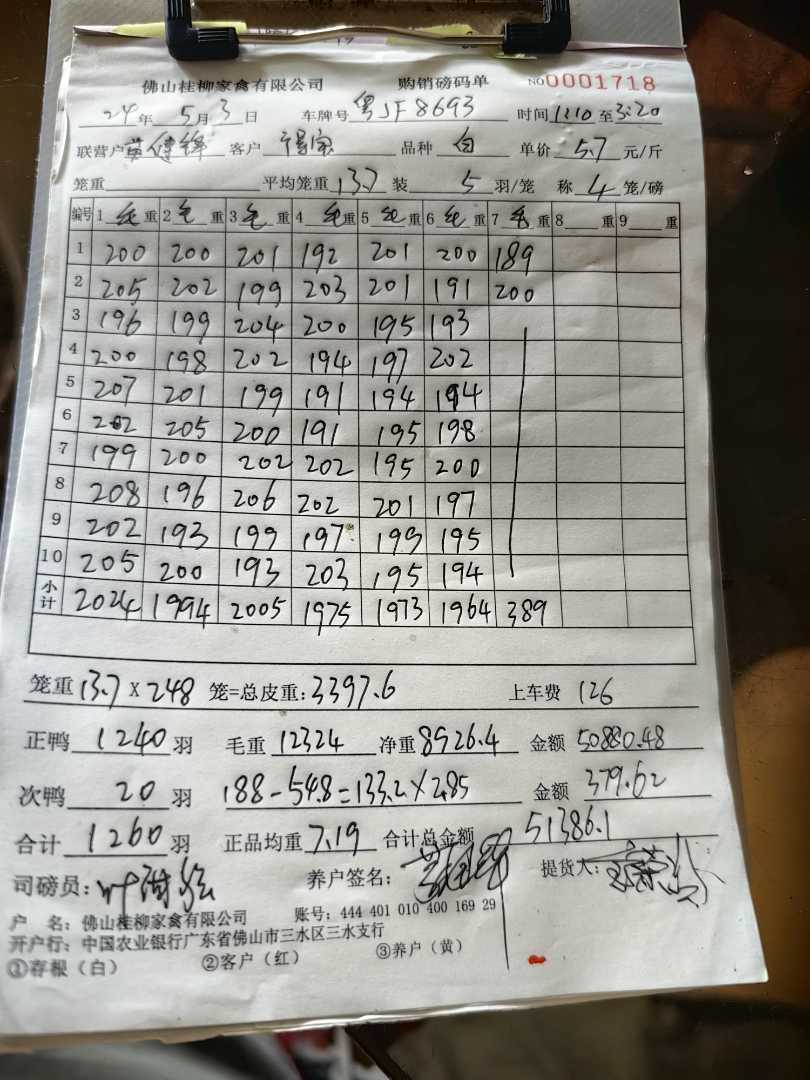 佛山桂柳家禽有限公司 购销磅码单 NO0001718
24年 5月 3日 车牌号 粤JF8693 时间 1:10 至 3:20
联营户 客户 品种 白 单价 5.7 元/斤
笼重 平均笼重 13.7 装 5 羽/笼 称 4 笼/磅
编号 1 毛 重 2 毛 重 3 毛 重 4 毛 重 5 毛 重 6 毛 重 7 毛 重 8 重 9 重
1 200 200 201 192 201 200 189
2 205 202 199 203 201 191 200
3 196 199 204 200 195 193
4 200 198 202 194 197 202
5 207 201 199 191 194 194
6 202 205 200 191 195 198
7 199 200 202 202 195 200
8 208 196 206 202 201 197
9 202 193 199 197 199 195
10 205 200 193 203 195 194
小计 2024 1994 2005 1975 1973 1964 389
笼重 13.7 X 248 笼=总皮重: 3397.6 上车费 126
正鸭 1240 羽 毛重 12324 净重 8926.4 金额 50880.48
次鸭 20 羽 188-54.8=133.2×2.85 金额 379.62
合计 1260 羽 正品均重 7.19 合计总金额 51386.1
司磅员: 养户签名: 提货人:
户 名: 佛山桂柳家禽有限公司 账号: 444 401 010 400 169 29
开户行: 中国农业银行广东省佛山市三水区三水支行
①存根（白） ②客户（红） ③养户（黄）